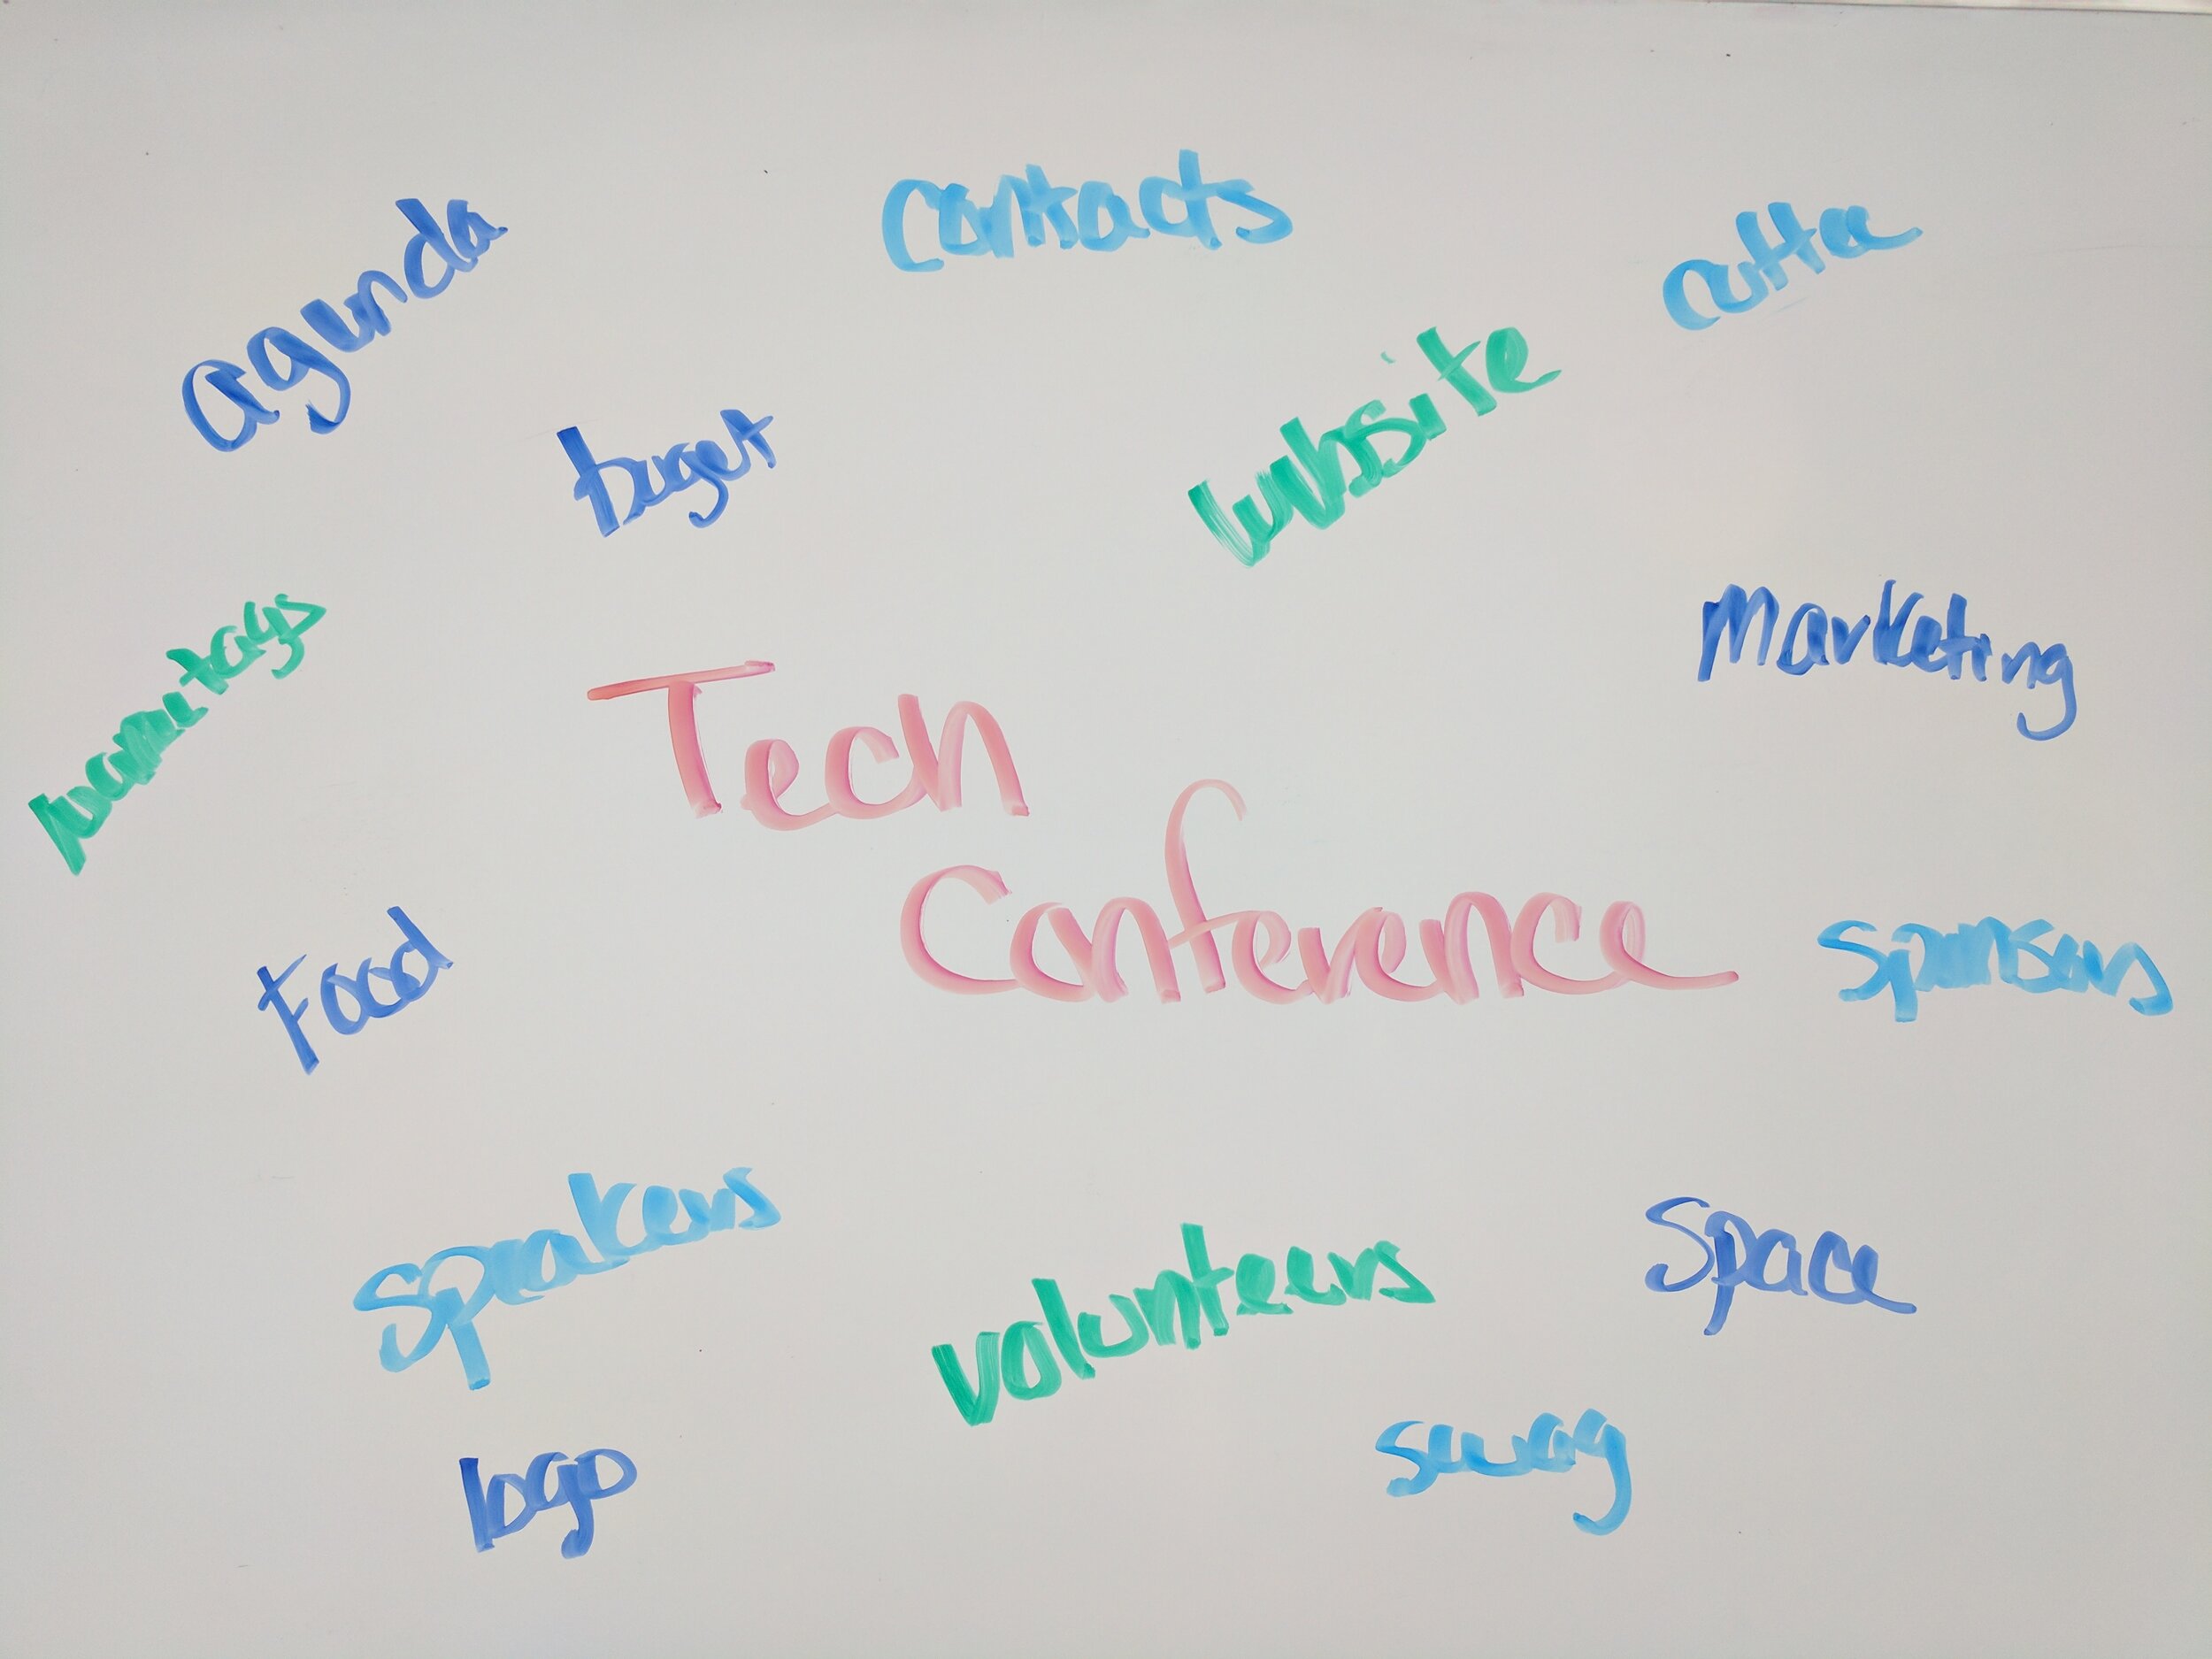 agenda
contacts
coffee
buget
website
name tags
Marketing
Tech
Conference
Food
sponsors
speakers
volunteers
Space
logo
swag